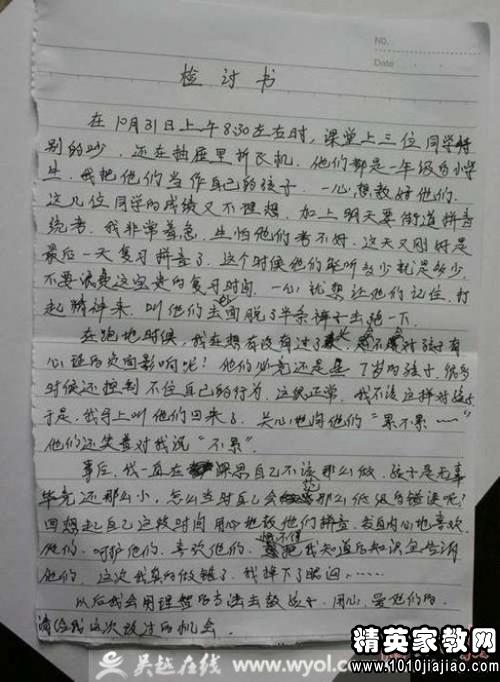 NO.
Date
检讨书
在10月31日上午8:30左右时，课堂上三位同学特
别的吵，还在抽屉里折飞机，他们都是一年级的小学
生，我把他们当作自己的孩子，一心想教好他们，
这几位同学的成绩又不理想，加上明天要街道拼音
统考，我非常着急，生怕他们考不好，这天又刚好是
最后一天复习拼音了，这个时候他们能听多少就是多少，
不要浪费这宝贵的复习时间，一心就想让他们记住，打
起精神来，叫他们去面脱了半条裤子去跑一下，
在跑地时候，我在想有没有过了，会不会对孩子有
心理的负面影响呢？他们必竟还是 7岁的孩子，很多
时候还控制不住自己的行为，这很正常，我不该这样对孩子
于是，我马上叫他们回来了，关心地问他们“累不累……”
他们还笑着对我说“不累”，
事后，我一直在深思自己不该那么做，孩子是无辜
毕竟还那么小，怎么当时自己会犯那么低级的错误呢？
回想起自己这段时间用心地教他们拼音，发自内心地喜欢
他们，呵护他们，喜欢他们，恨不得把我知道的知识全告诉
他们，这次我真的做错了，我掉下了眼泪……
以后我会用理智的方法去教孩子，用心，爱他们的，
请给我这次改过的机会．
吴越在线 www.wyol.com
精英家教网
www.1010jiajiao.com